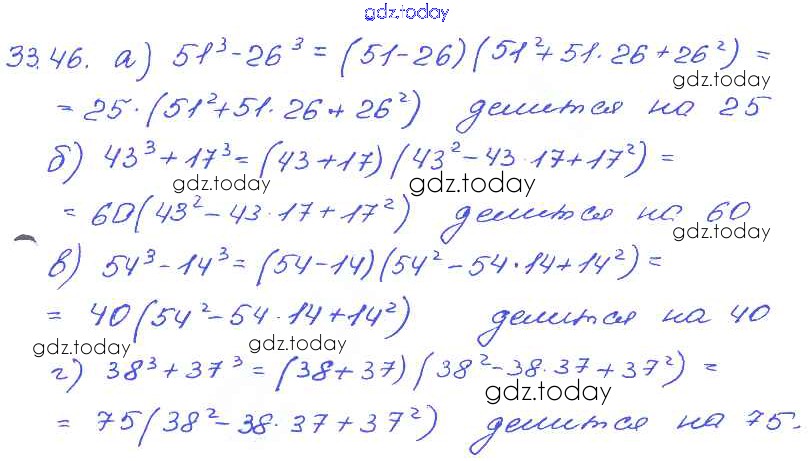 gdz.today
33.46. а) 51³-26³ = (51-26)(51²+51·26+26²) =
gdz.today
= 25·(51²+51·26+26²) делится на 25
б) 43³+17³=(43+17)(43²-43·17+17²)=
gdz.today gdz.today
= 60(43²-43·17+17²) делится на 60
gdz.today
в) 54³-14³=(54-14)(54²-54·14+14²)=
= 40(54²-54·14+14²) делится на 40
gdz.today gdz.today
г) 38³+37³=(38+37)(38²-38·37+37²)=
gdz.today
= 75(38²-38·37+37²) делится на 75.